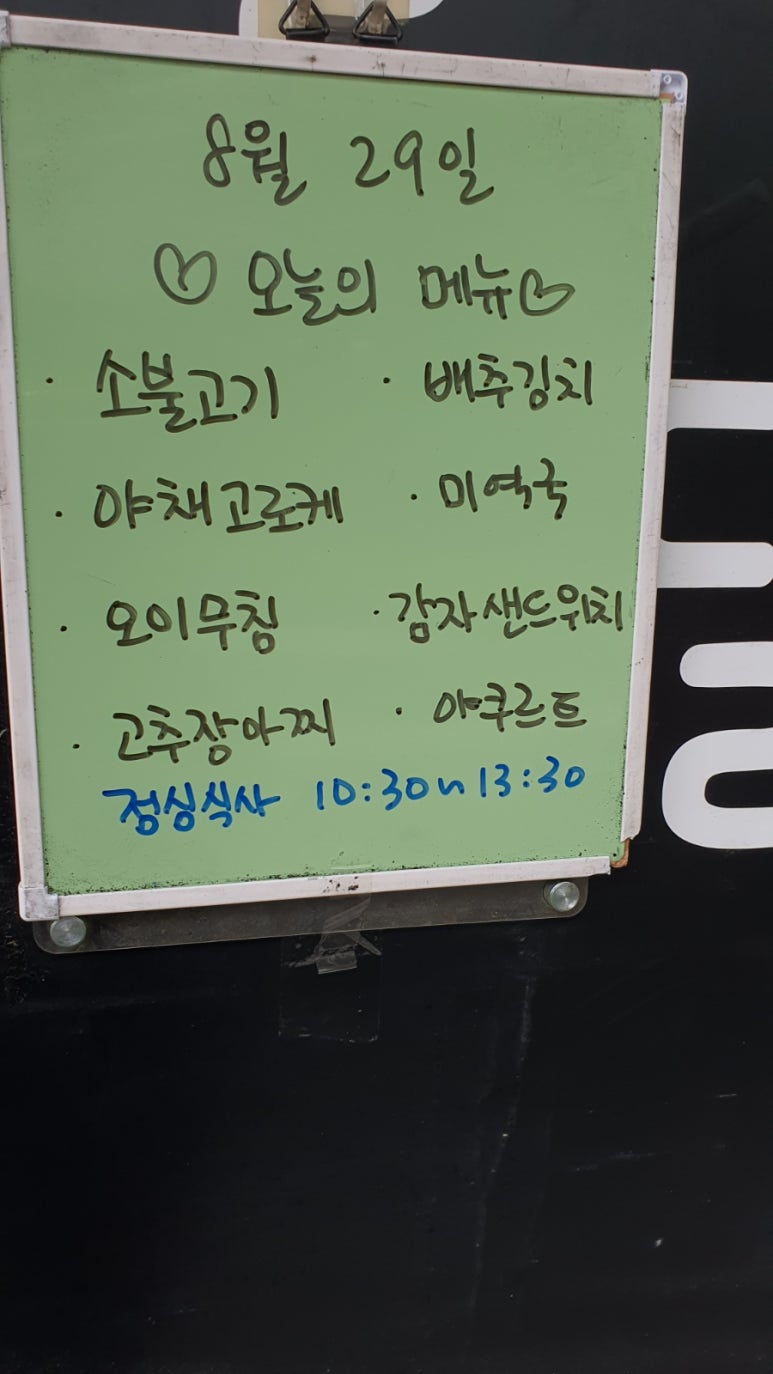 8월 29일
♡ 오늘의 메뉴♡
· 소불고기 · 배추김치
· 야채고로케 · 미역국
· 오이무침 · 감자샌드위치
· 고추장아찌 · 야쿠르트
점심식사 10:30~13:30